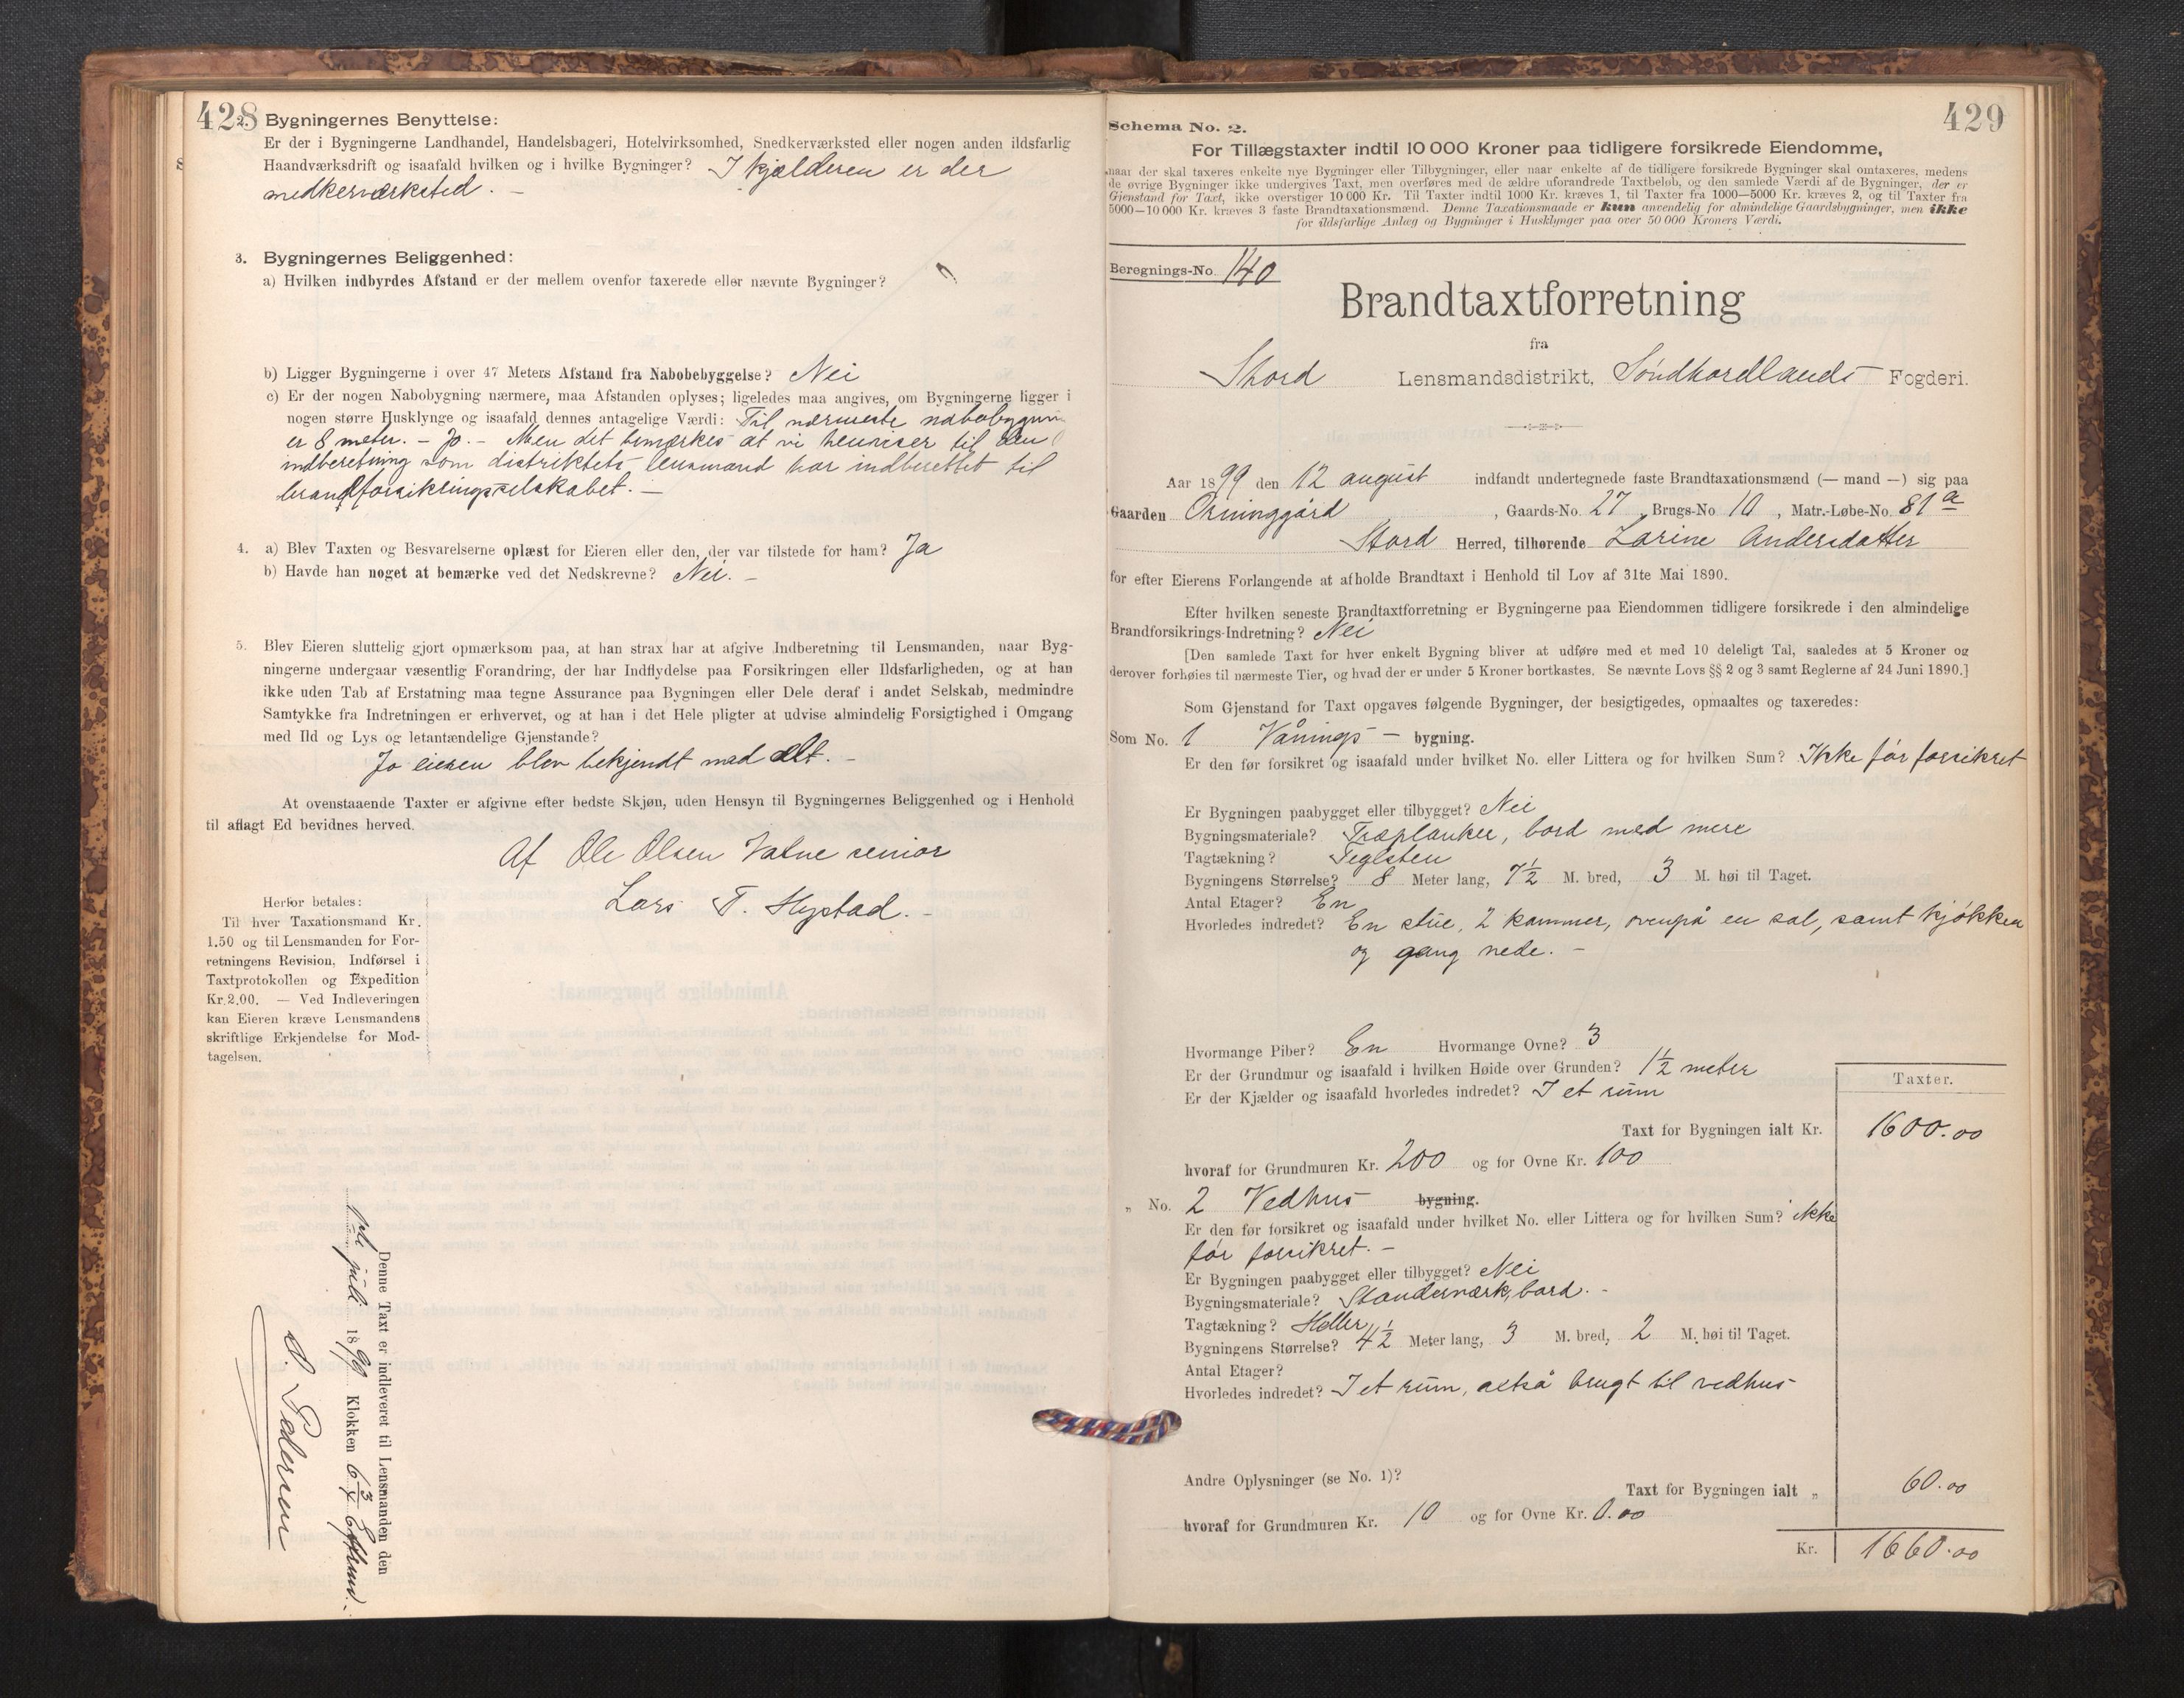 428
2. Bygningernes Benyttelse:
Er der i Bygningerne Landhandel, Handelsbageri, Hotelvirksomhed, Snedkerværksted eller nogen anden ildsfarlig
Haandværksdrift og isaafald hvilken og i hvilke Bygninger? I kjælderen er der
snedkerværksted. —
3. Bygningernes Beliggenhed:
a) Hvilken indbyrdes Afstand er der mellem ovenfor taxerede eller nævnte Bygninger?
b) Ligger Bygningerne i over 47 Meters Afstand fra Nabobebyggelse? Nei
c) Er der nogen Nabobygning nærmere, maa Afstanden oplyses; ligeledes maa angives, om Bygningerne ligger i
nogen større Husklynge og isaafald dennes antagelige Værdi: Til nærmeste nabobygning
er 8 meter. — Jo. — Men det bemærkes at vi henviser til den
indberetning som distriktets lensmand har indberettet til
brandforsikringsselskabet. —
4. a) Blev Taxten og Besvarelserne oplæst for Eieren eller den, der var tilstede for ham? Ja
b) Havde han noget at bemærke ved det Nedskrevne? Nei. —
5. Blev Eieren sluttelig gjort opmærksom paa, at han strax har at afgive Indberetning til Lensmanden, naar Byg-
ningerne undergaar væsentlig Forandring, der har Indflydelse paa Forsikringen eller Ildsfarligheden, og at han
ikke uden Tab af Erstatning maa tegne Assurance paa Bygningen eller Dele deraf i andet Selskab, medmindre
Samtykke fra Indretningen er erhvervet, og at han i det Hele pligter at udvise almindelig Forsigtighed i Omgang
med Ild og Lys og letantændelige Gjenstande?
Jo eieren blev bekjendt med alt. —
At ovenstaaende Taxter er afgivne efter bedste Skjøn, uden Hensyn til Bygningernes Beliggenhed og i Henhold
til aflagt Ed bevidnes herved.
Af Ole Olsen Valne senior
Lars T. Hystad. —
Herfor betales:
Til hver Taxationsmand Kr.
1.50 og til Lensmanden for For-
retningens Revision, Indførsel i
Taxtprotokollen og Expedition
Kr. 2.00. — Ved Indleveringen
kan Eieren kræve Lensmandens
skriftlige Erkjendelse for Mod-
tagelsen.
Denne Taxt er indleveret til Lensmanden den
juli 1899 Klokken 6 3/4 Efterm.
P. Pedersen
429
Schema No. 2.
For Tillægstaxter indtil 10 000 Kroner paa tidligere forsikrede Eiendomme,
naar der skal taxeres enkelte nye Bygninger eller Tilbygninger, eller naar enkelte af de tidligere forsikrede Bygninger skal omtaxeres, medens
de øvrige Bygninger ikke undergives Taxt, men overføres med de ældre uforandrede Taxtbeløb, og den samlede Værdi af de Bygninger, der er
Gjenstand for Taxt, ikke overstiger 10 000 Kr. Til Taxter indtil 1000 Kr. kræves 1, til Taxter fra 1000—5000 Kr. kræves 2, og til Taxter fra
5000—10 000 Kr. kræves 3 faste Brandtaxationsmænd. Denne Taxationsmaade er kun anvendelig for almindelige Gaardsbygninger, men ikke
for ildsfarlige Anlæg og Bygninger i Husklynger paa over 50 000 Kroners Værdi.
Beregnings-No. 140
Brandtaxtforretning
fra
Stord Lensmandsdistrikt, Søndhordlands Fogderi.
Aar 1899 den 12 august indfandt undertegnede faste Brandtaxationsmænd (— mand —) sig paa
Gaarden Orninggård, Gaards-No. 27, Brugs-No 10, Matr.-Løbe-No. 81a
Stord Herred, tilhørende Larine Andersdatter
for efter Eierens Forlangende at afholde Brandtaxt i Henhold til Lov af 31te Mai 1890.
Efter hvilken seneste Brandtaxtforretning er Bygningerne paa Eiendommen tidligere forsikrede i den almindelige
Brandforsikrings-Indretning? Nei
[Den samlede Taxt for hver enkelt Bygning bliver at udføre med et med 10 deleligt Tal, saaledes at 5 Kroner og
derover forhøies til nærmeste Tier, og hvad der er under 5 Kroner bortkastes. Se nævnte Lovs §§ 2 og 3 samt Reglerne af 24 Juni 1890.]
Som Gjenstand for Taxt opgaves følgende Bygninger, der besigtigedes, opmaaltes og taxeredes:
Som No. 1 Vånings — bygning.
Er den før forsikret og isaafald under hvilket No. eller Littera og for hvilken Sum? Ikke før forsikret
Er Bygningen paabygget eller tilbygget? Nei
Bygningsmateriale? Træplanker, bord med mere
Tagtækning? Teglsten
Bygningens Størrelse? 8 Meter lang, 7 1/2 M. bred, 3 M. høi til Taget.
Antal Etager? En
Hvorledes indredet? En stue, 2 kammer, ovenpå en sal, samt kjøkken
og gang nede. —
Hvormange Piber? En Hvormange Ovne? 3
Er der Grundmur og isaafald i hvilken Høide over Grunden? 1 1/2 meter
Er der Kjælder og isaafald hvorledes indredet? I et rum
Taxter.
Taxt for Bygningen ialt Kr. 1600.00
hvoraf for Grundmuren Kr. 200 og for Ovne Kr. 100
„ No. 2 Vedhus bygning.
Er den før forsikret og isaafald under hvilket No. eller Littera og for hvilken Sum? ikke
før forsikret. —
Er Bygningen paabygget eller tilbygget? Nei
Bygningsmateriale? Standerværk, bord. —
Tagtækning? Heller
Bygningens Størrelse? 4 1/2 Meter lang, 3 M. bred, 2 M. høi til Taget.
Antal Etager?
Hvorledes indredet? I et rum, altså brugt til vedhus
Andre Oplysninger (se No. 1)?
Taxt for Bygningen ialt „ 60.00
hvoraf for Grundmuren Kr. 10 og for Ovne Kr. 0.00
Kr. 1660.00